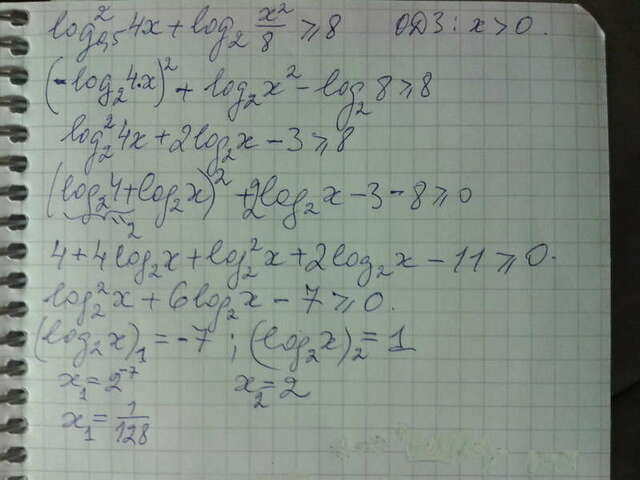 log²₀,₅ 4x + log₂ x²/8 ⩾ 8 ОДЗ: x > 0.
(-log₂ 4·x)² + log₂ x² - log₂ 8 ⩾ 8
log₂² 4x + 2log₂ x - 3 ⩾ 8
(log₂ 4 + log₂ x)² + 2log₂ x - 3 - 8 ⩾ 0
2
4 + 4log₂ x + log₂² x + 2log₂ x - 11 ⩾ 0.
log₂² x + 6log₂ x - 7 ⩾ 0.
(log₂ x)₁ = -7 ; (log₂ x)₂ = 1
x₁ = 2⁻⁷ x₂ = 2
x₁ = 1/128